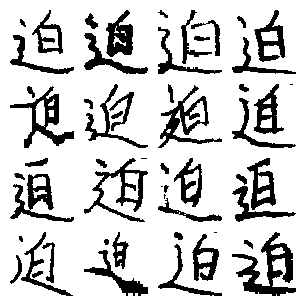 迫迫迫迫
迫迫迫迫
迫迫迫迫
迫迫迫迫